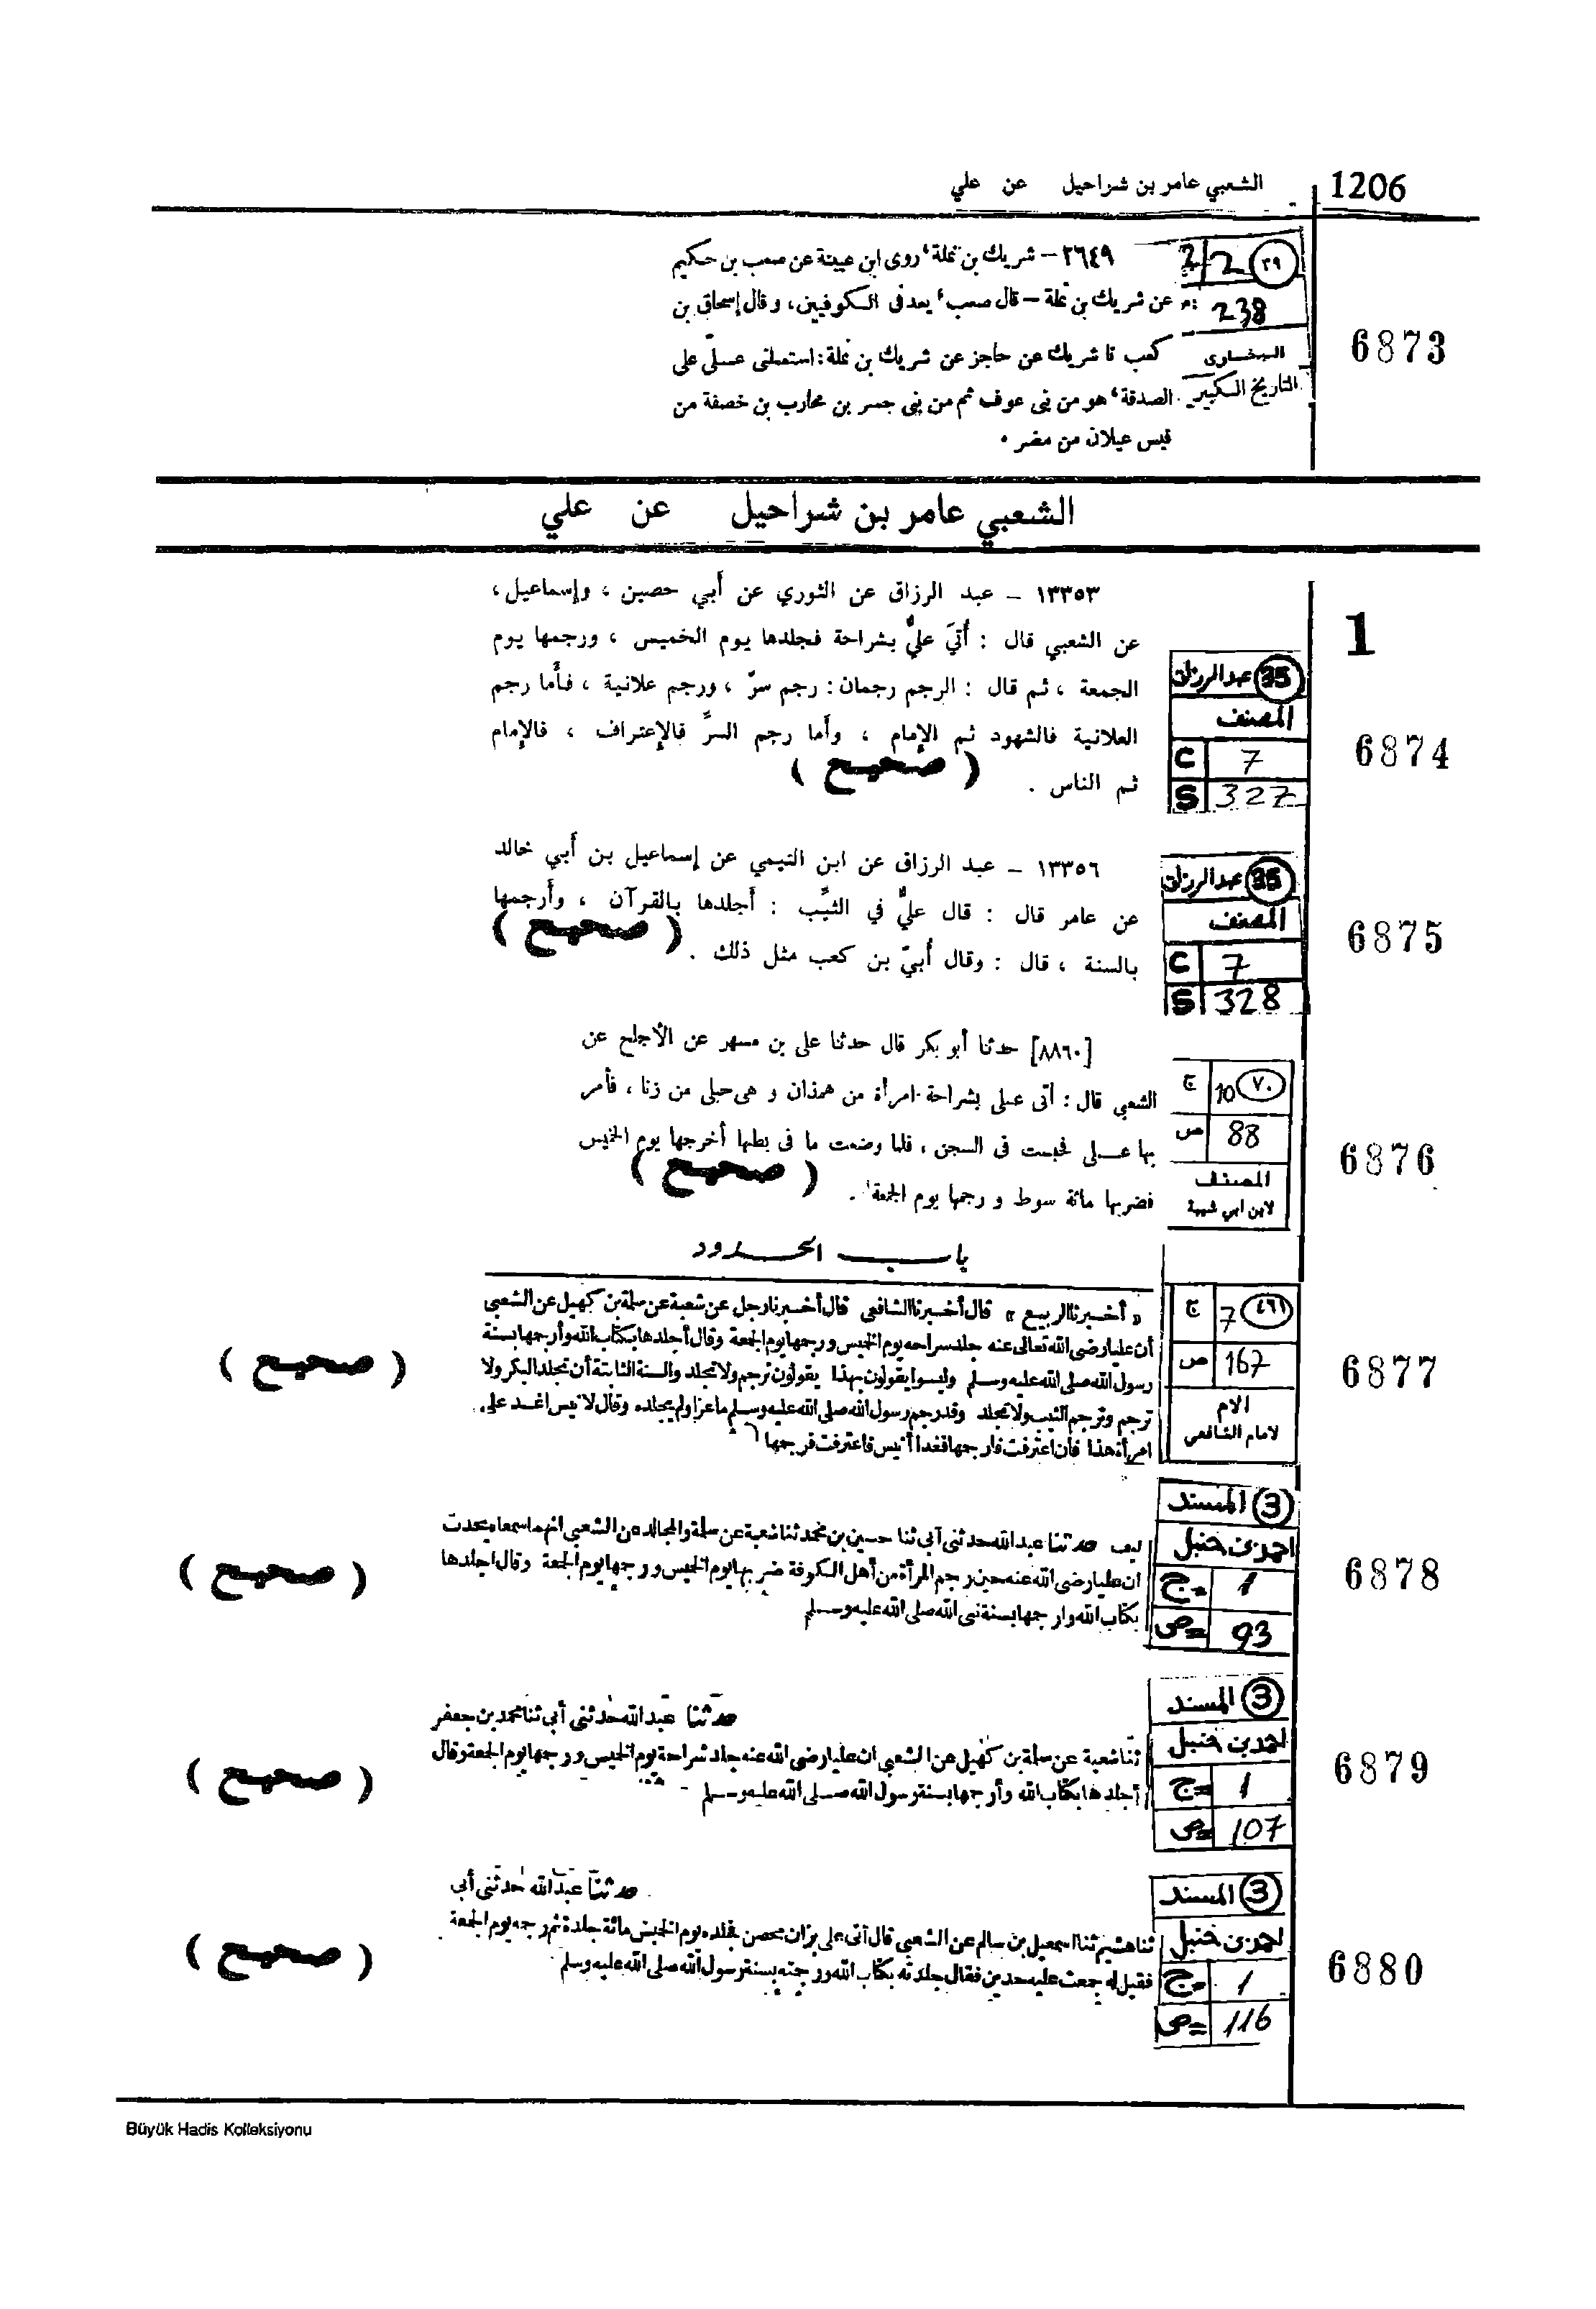 1206 الشعبي عامر بن شراحيل عن علي
6873
٢٩ 2/2
238
البخارى
التاريخ الكبير
٢٦٤٩ – شريك بن نملة، روى ابن عيينة عن صعب بن حكيم
عن شريك بن نملة – قال صعب، يعد فى الكوفيين، وقال إسحاق بن
كعب نا شريك عن حاجز عن شريك بن نملة: استعملنى علىّ على
الصدقة، هو من بنى عوف ثم من بنى جسر بن محارب بن خصفة من
قيس عيلان من مضر .
الشعبي عامر بن شراحيل عن علي
1
6874
35 عبدالرزاق
المصنف
C 7
S 327
١٣٣٥٣ – عبد الرزاق عن الثوري عن أبي حصين ، وإسماعيل،
عن الشعبي قال : أُتيَ عليٌّ بشراحة فجلدها يوم الخميس ، ورجمها يوم
الجمعة ، ثم قال : الرجم رجمان: رجم سرّ ، ورجم علانية ، فأما رجم
العلانية فالشهود ثم الإمام ، وأما رجم السرِّ فالإعتراف ، فالإمام
ثم الناس .
( صحيح )
6875
35 عبدالرزاق
المصنف
C 7
S 328
١٣٣٥٦ – عبد الرزاق عن ابن التيمي عن إسماعيل بن أبي خالد
عن عامر قال : قال عليٌّ في الثيِّب : أجلدها بالقرآن ، وأرجمها
بالسنة ، قال : وقال أُبيّ بن كعب مثل ذلك .
( صحيح )
6876
٧٠ 10 ج
88 ص
المصنف
لابن ابي شيبة
[٨٨٦٠] حدثنا أبو بكر قال حدثنا على بن مسهر عن الأجلح عن
الشعبي قال: أتى على بشراحة امرأة من همذان و هى حبلى من زنا ، فأمر
بها عـلى فحبست فى السجن ، فلما وضعت ما فى بطنها أخرجها يوم الخميس
فضربها مائة سوط و رجمها يوم الجمعة .
( صحيح )
باب الحدود
6877
٤٦١ 7 ج
167 ص
الام
لامام الشافعي
« أخبرنا الربيع » قال أخبرنا الشافعى قال أخبرنا رجل عن شعبة عن سلمة بن كهيل عن الشعبى
أن عليا رضى الله تعالى عنه جلد سراحه يوم الخيس ورجمها يوم الجمعة وقال أجلدها بكتاب الله وأرجمها بسنة
رسول الله صلى الله عليه وسلم وليسوا يقولون بهذا يقولون ترجم ولا تجلد والسنة الثابتة أن تجلد البكر ولا
ترجم وترجم الثيب ولا تجلد وقد رجم رسول الله صلى الله عليه وسلم ماعزا ولم يجلده وقال لانيس اغد على
امرأة هذا فان اعترفت فارجمها فغدا أنيس فاعترفت فرجمها
( صحيح )
6878
3 المسند
احمد بن حنبل
ج= 1
ص= 93
حدثنا عبد الله حدثنى أبى ثنا حسين بن محمد ثنا شعبة عن سلمة والمجالد عن الشعبى انهما سمعاه يحدث
ان عليا رضى الله عنه حين رجم المرأة من أهل الكوفة ضربها يوم الخيس ورجمها يوم الجمعة وقال اجلدها
بكتاب الله وارجمها بسنة نبى الله صلى الله عليه وسلم
( صحيح )
6879
3 المسند
احمد بن حنبل
ج= 1
ص= 107
حدثنا عبد الله حدثنى أبى ثنا محمد بن جعفر
ثنا شعبة عن سلمة بن كهيل عن الشعبى ان عليا رضى الله عنه جلد شراحة يوم الخيس ورجمها يوم الجمعة وقال
أجلدها بكتاب الله وأرجمها بسنة رسول الله صلى الله عليه وسلم
( صحيح )
6880
3 المسند
احمد بن حنبل
ج= 1
ص= 116
حدثنا عبد الله حدثنى أبى
ثنا هشيم ثنا اسمعيل بن سالم عن الشعبى قال أتى على بزان محصن فجلده يوم الخيس مائة جلدة ثم رجمه يوم الجمعة
فقيل له جمعت عليه حدين فقال جلدته بكتاب الله ورجمته بسنة رسول الله صلى الله عليه وسلم
( صحيح )
Büyük Hadis Kolleksiyonu